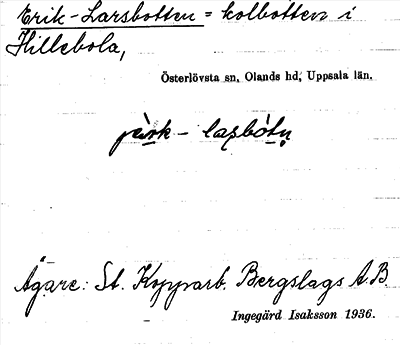 Erik-Larsbotten = kolbotten i
Hillebola,
Österlövsta sn, Olands hd, Uppsala län.
Ägare: St. Kopparb. Bergslags A.B.
Ingegärd Isaksson 1936.